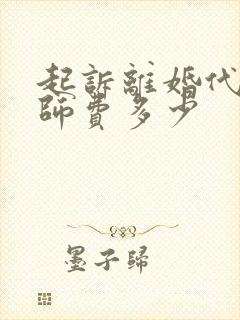 起訴離婚代
師費多少
墨子歸